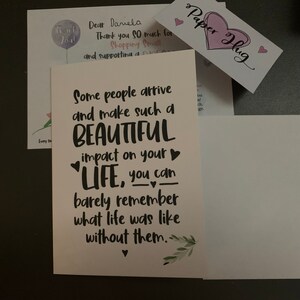 Dear Daniela
Thank you SO much for
Shopping Small
and supporting a
Paper Hug
Some people arrive
and make such a
BEAUTIFUL
impact on your
LIFE, you can
barely remember
what life was like
without them.